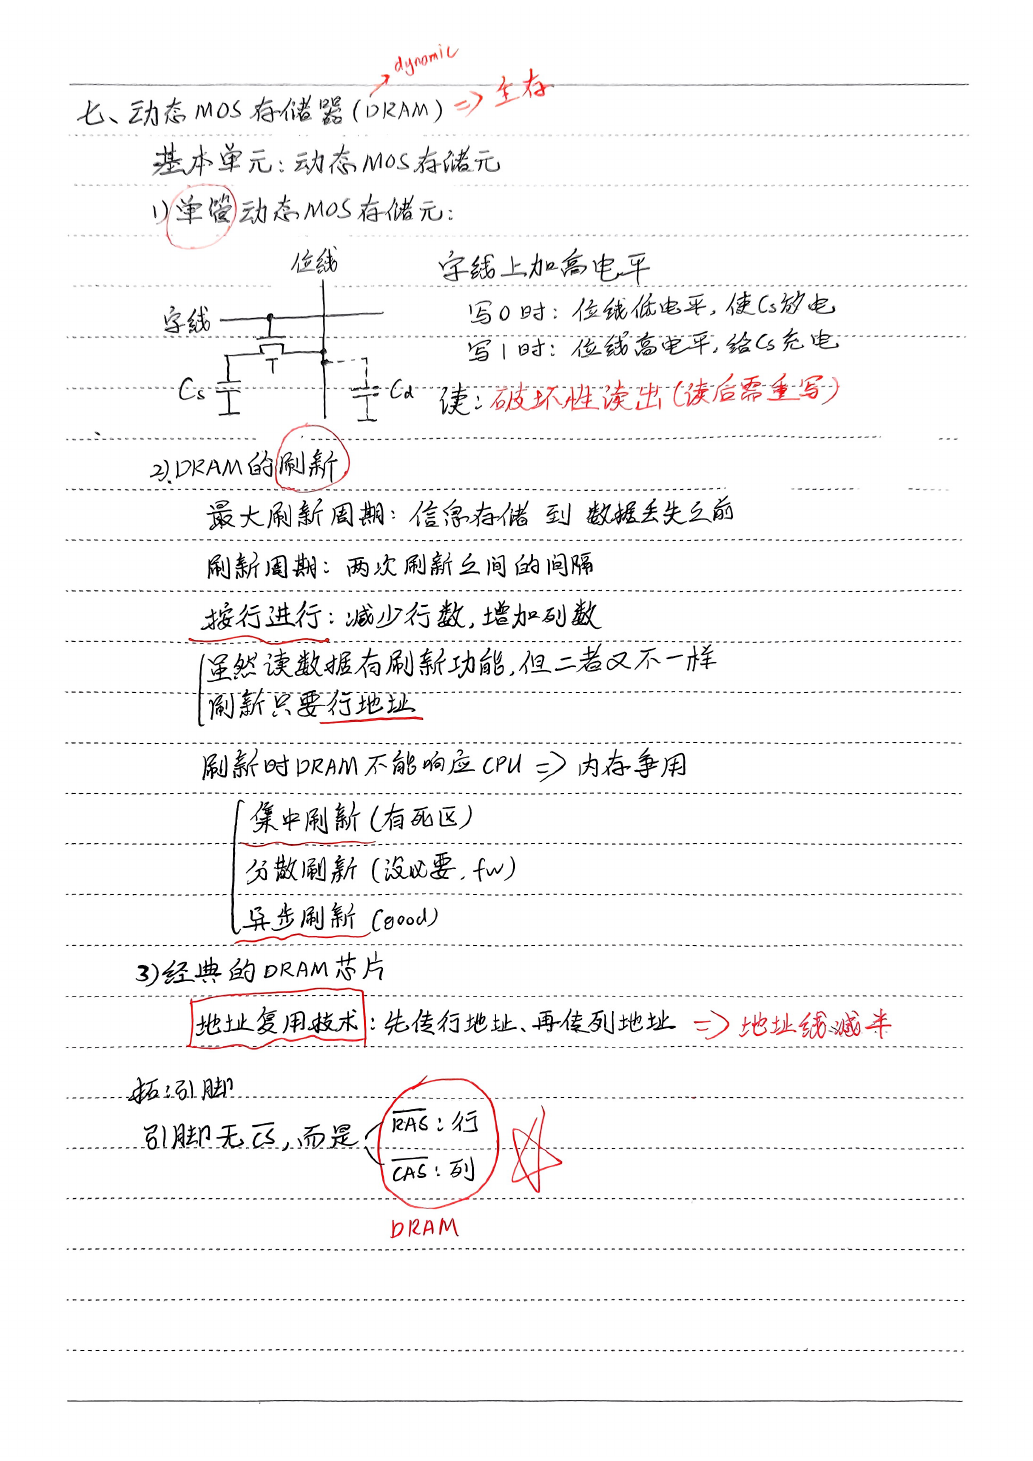 dynamic
七、动态MOS存储器(DRAM) => 主存
基本单元:动态MOS存储元
1)单管动态MOS存储元:
位线
字线上加高电平
字线
写0时: 位线低电平,使Cs放电
写1时: 位线高电平,给Cs充电
T
Cs
Cd
读:破坏性读出(读后需重写)
2).DRAM的刷新
最大刷新周期: 信息存储 到 数据丢失之前
刷新周期: 两次刷新之间的间隔
按行进行: 减少行数,增加列数
虽然读数据有刷新功能,但二者又不一样
刷新只要行地址
刷新时DRAM不能响应CPU => 内存争用
集中刷新(有死区)
分散刷新(没必要, fw)
异步刷新(good)
3)经典的DRAM芯片
地址复用技术: 先传行地址、再传列地址 => 地址线减半
拓:引脚
引脚无C̅S̅,而是
R̅A̅S̅: 行
C̅A̅S̅: 列
DRAM